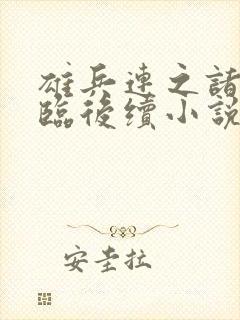 雄兵連之諸
臨後續小說
安圭拉